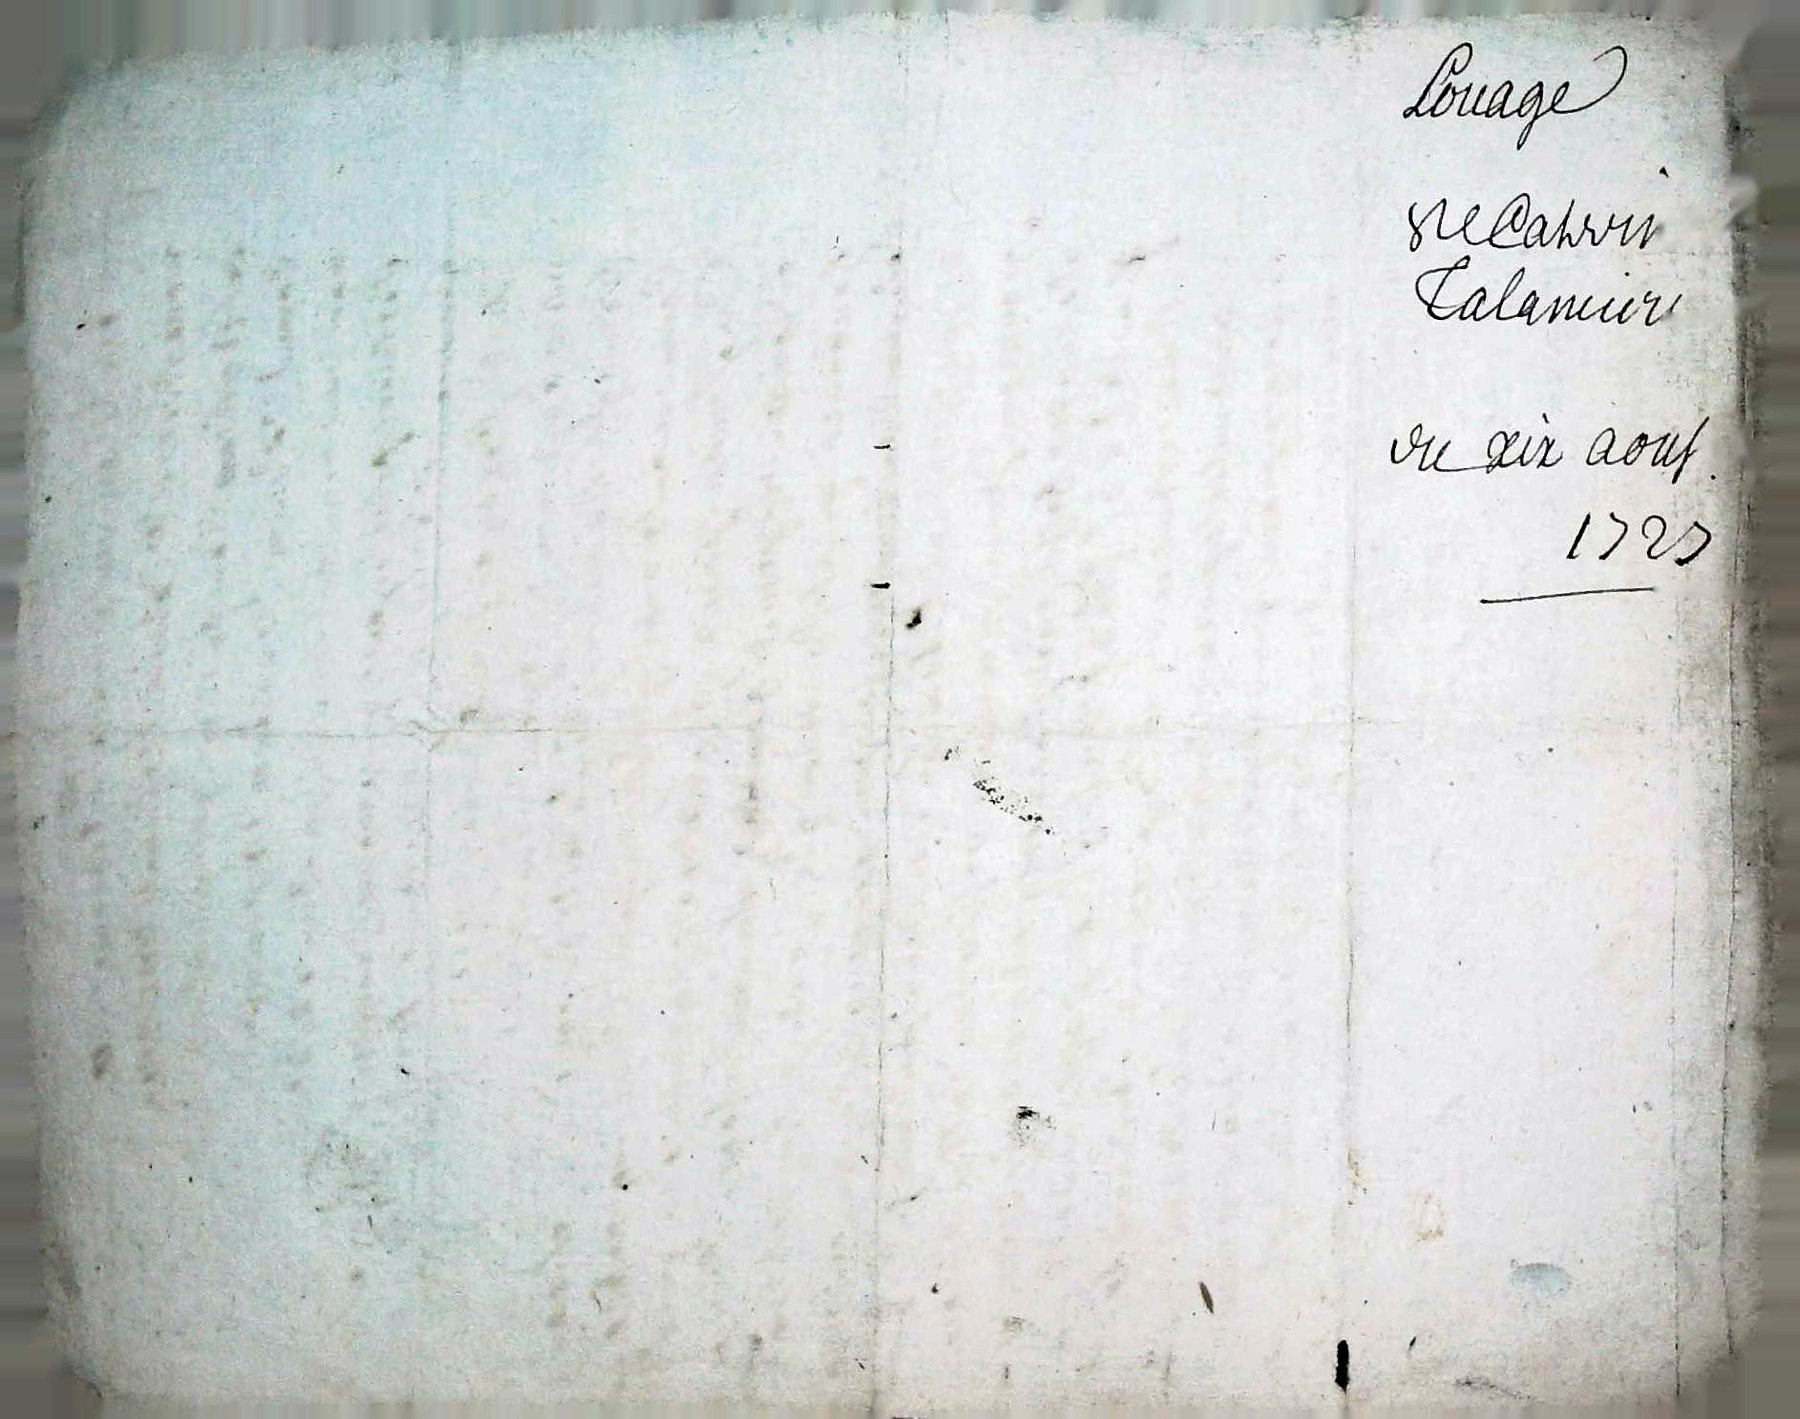 Louage
de Catrin
Talanier
du dix aout
1727